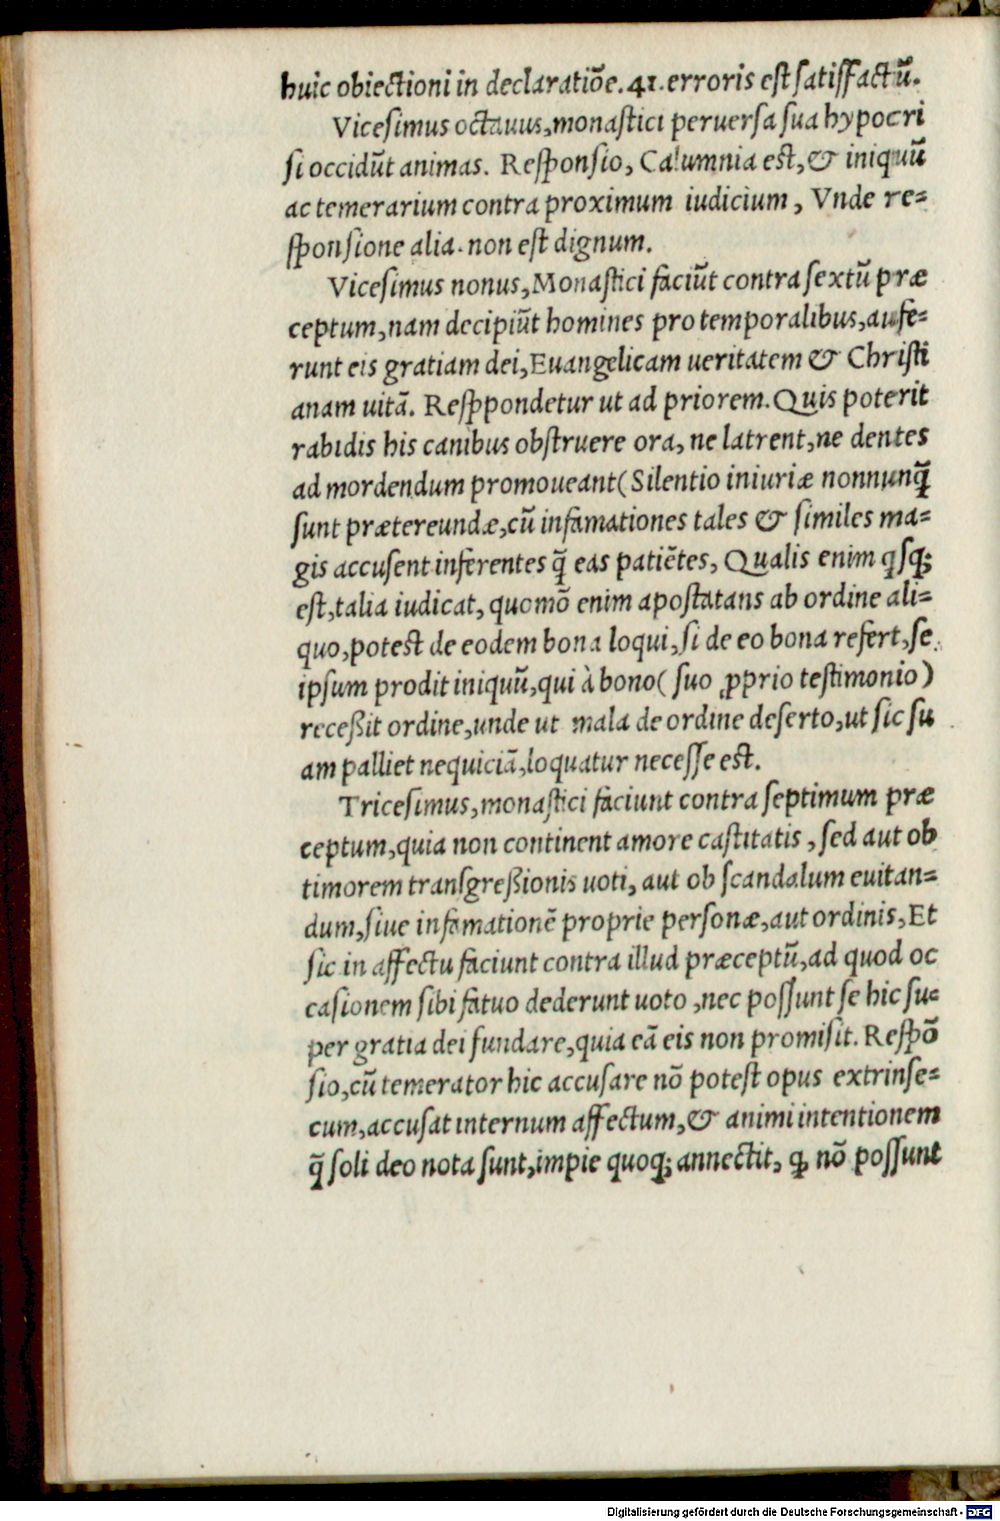 huic obiectioni in declaratiõe.41.erroris est satisfactũ.
Vicesimus octauus,monastici peruersa sua hypocri
si occidũt animas. Responsio, Calumnia est,& iniquũ
ac temerarium contra proximum iudicium, Vnde re=
sponsione alia.non est dignum.
Vicesimus nonus,Monastici faciũt contra sextũ præ
ceptum,nam decipiũt homines pro temporalibus,aufe=
runt eis gratiam dei,Euangelicam ueritatem & Christi
anam uitã. Resppondetur ut ad priorem.Quis poterit
rabidis his canibus obstruere ora, ne latrent,ne dentes
ad mordendum promoueant(Silentio iniuriæ nonnunq̃
sunt prætereundæ,cũ infamationes tales & similes ma=
gis accusent inferentes q̃ eas patiẽtes, Qualis enim qsq;
est,talia iudicat, quomõ enim apostatans ab ordine ali=
quo,potest de eodem bona loqui,si de eo bona refert,se
ipsum prodit iniquũ,qui à bono( suo ꝓprio testimonio)
receßit ordine,unde ut mala de ordine deserto,ut sic su
am palliet nequiciã,loquatur necesse est.
Tricesimus,monastici faciunt contra septimum præ
ceptum,quia non continent amore castitatis, sed aut ob
timorem transgreßionis uoti, aut ob scandalum euitan=
dum,siue infamationẽ proprie personæ,aut ordinis,Et
sic in affectu faciunt contra illud præceptũ,ad quod oc
casionem sibi fatuo dederunt uoto,nec possunt se hic su=
per gratia dei fundare,quia eã eis non promisit. Respõ
sio,cũ temerator hic accusare nõ potest opus extrinse=
cum,accusat internum affectum,& animi intentionem
q̃ soli deo nota sunt,impie quoq; annectit, ꝙ nõ possunt
Digitalisierung gefördert durch die Deutsche Forschungsgemeinschaft - DFG